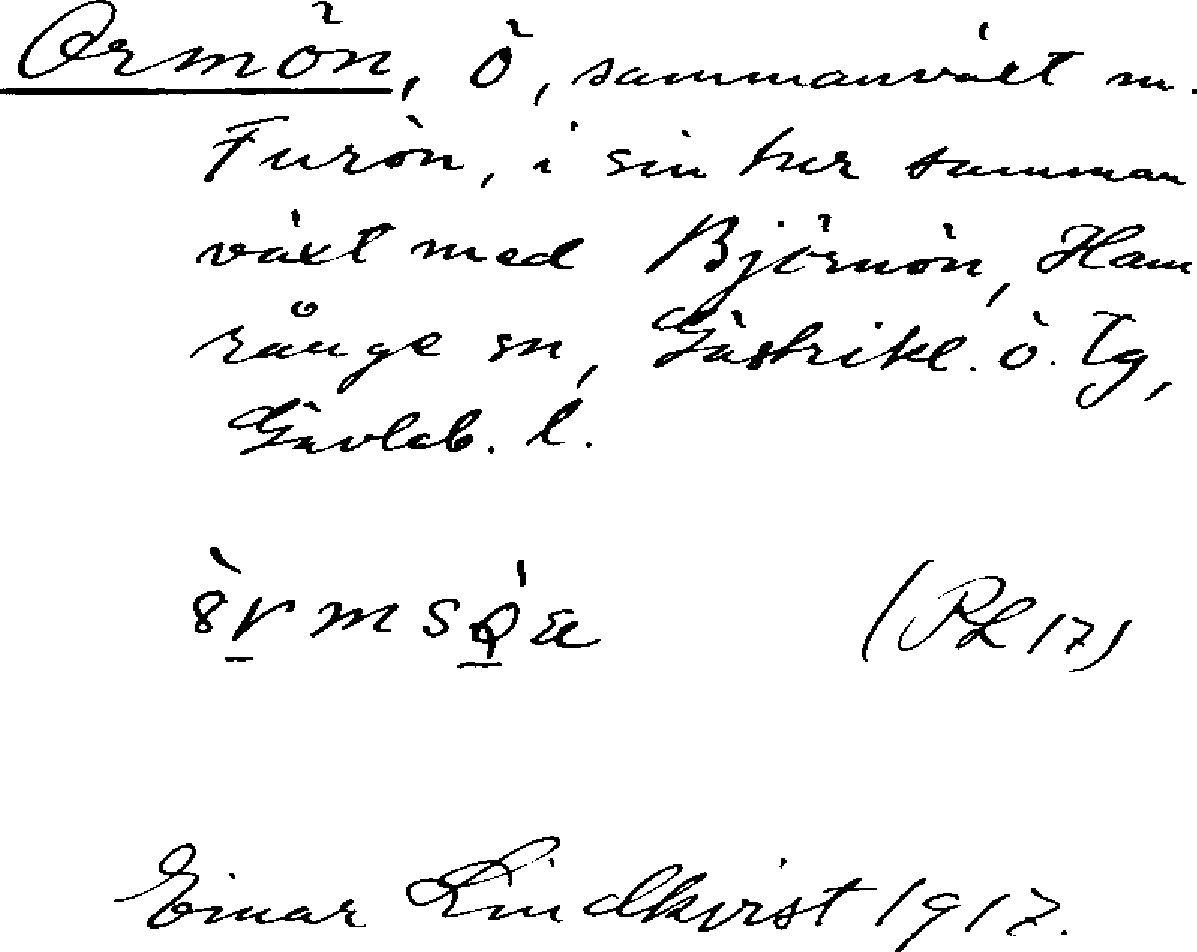 Ormön, ö, sammanväxt m.
Furön, i sin tur samman
växt med Björnön, Ham
rånge sn, Gästrikl. ö. tg,
Gävleb. l.
(RL 17)
Einar Lindkvist 1917.